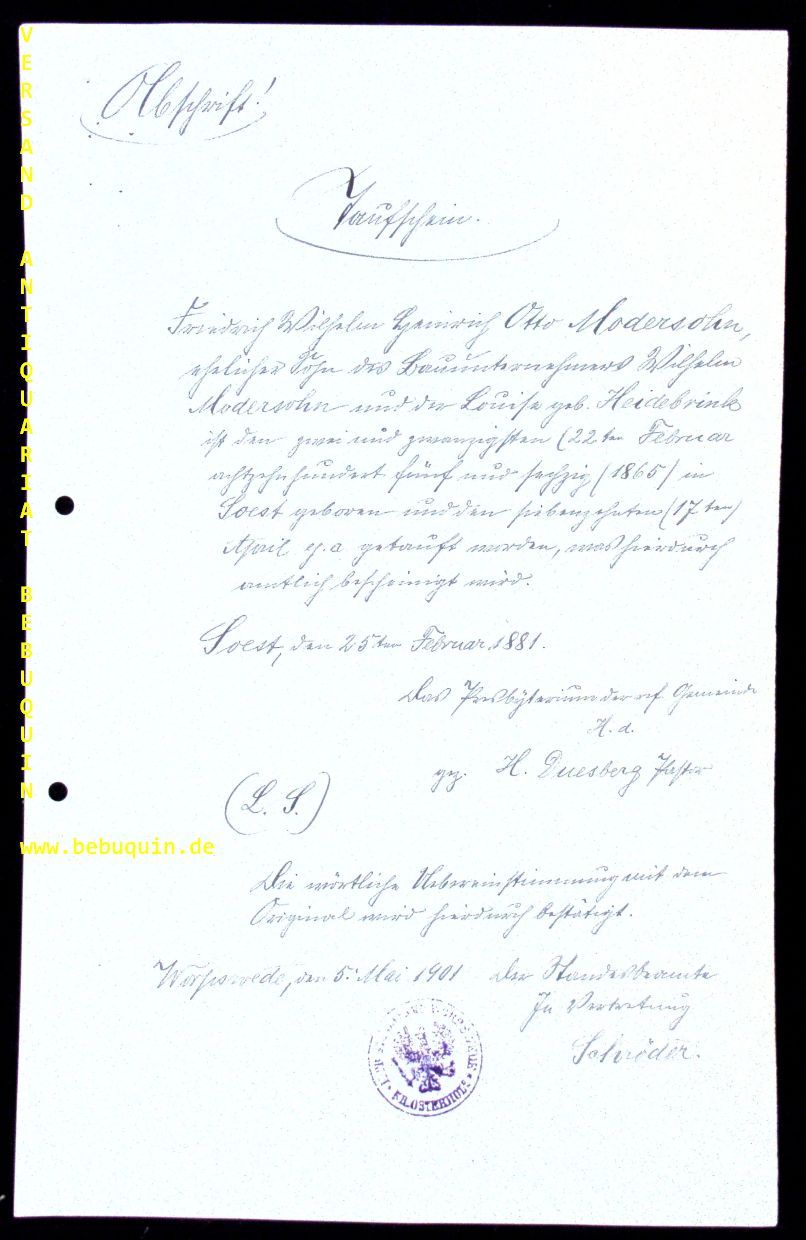 Abschrift!
Taufschein.
Friedrich Wilhelm Heinrich Otto Modersohn,
ehelicher Sohn des Bauunternehmers Wilhelm
Modersohn und der Louise geb. Heidebrink
ist den zwei und zwanzigsten (22ten Februar
achtzehnhundert fünf und sechzig (1865) in
Soest geboren und den siebenzehnten (17ten)
April ej. a. getauft worden, was hierdurch
amtlich bescheinigt wird.
Soest, den 25ten Februar 1881.
Das Presbyterium der ref Gemeinde
H. d.
gez. H. Duesberg Pastor
(L. S.)
Die wörtliche Uebereinstimmung mit dem
Original wird hierdurch bestätigt.
Worpswede, den 5. Mai 1901 Der Standesbeamte
In Vertretung
Schröder.
KR. OSTERHOLZ
VERSAND ANTIQUARIAT BEBUQUIN
www.bebuquin.de